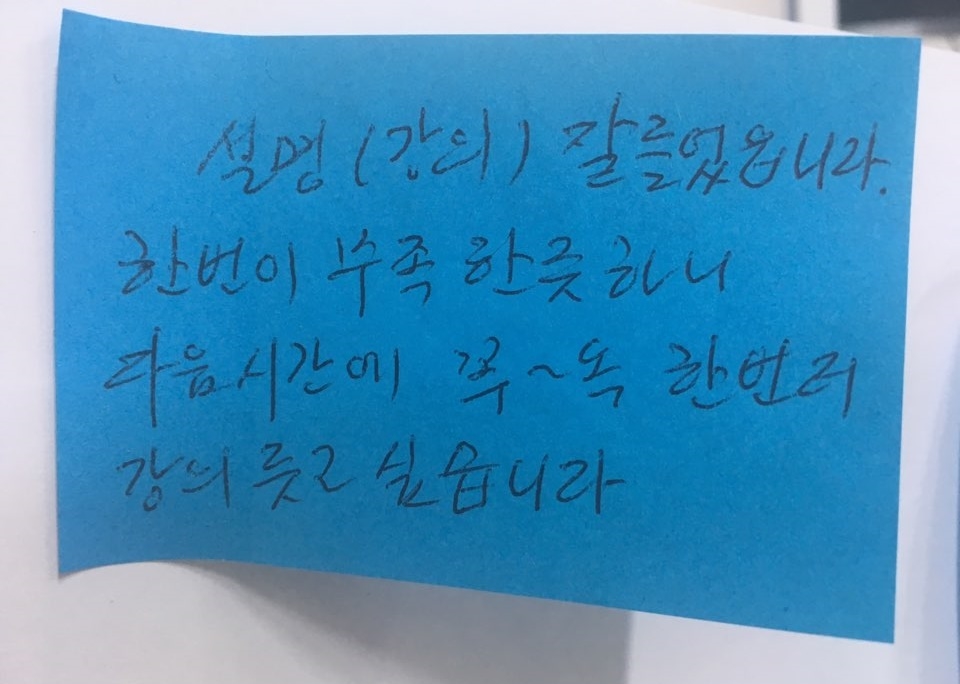 설명 (강의) 잘 들었읍니다.
한번이 부족 한듯 하니
다음시간에 꾹~독 한번더
강의 듯고 싶습니다